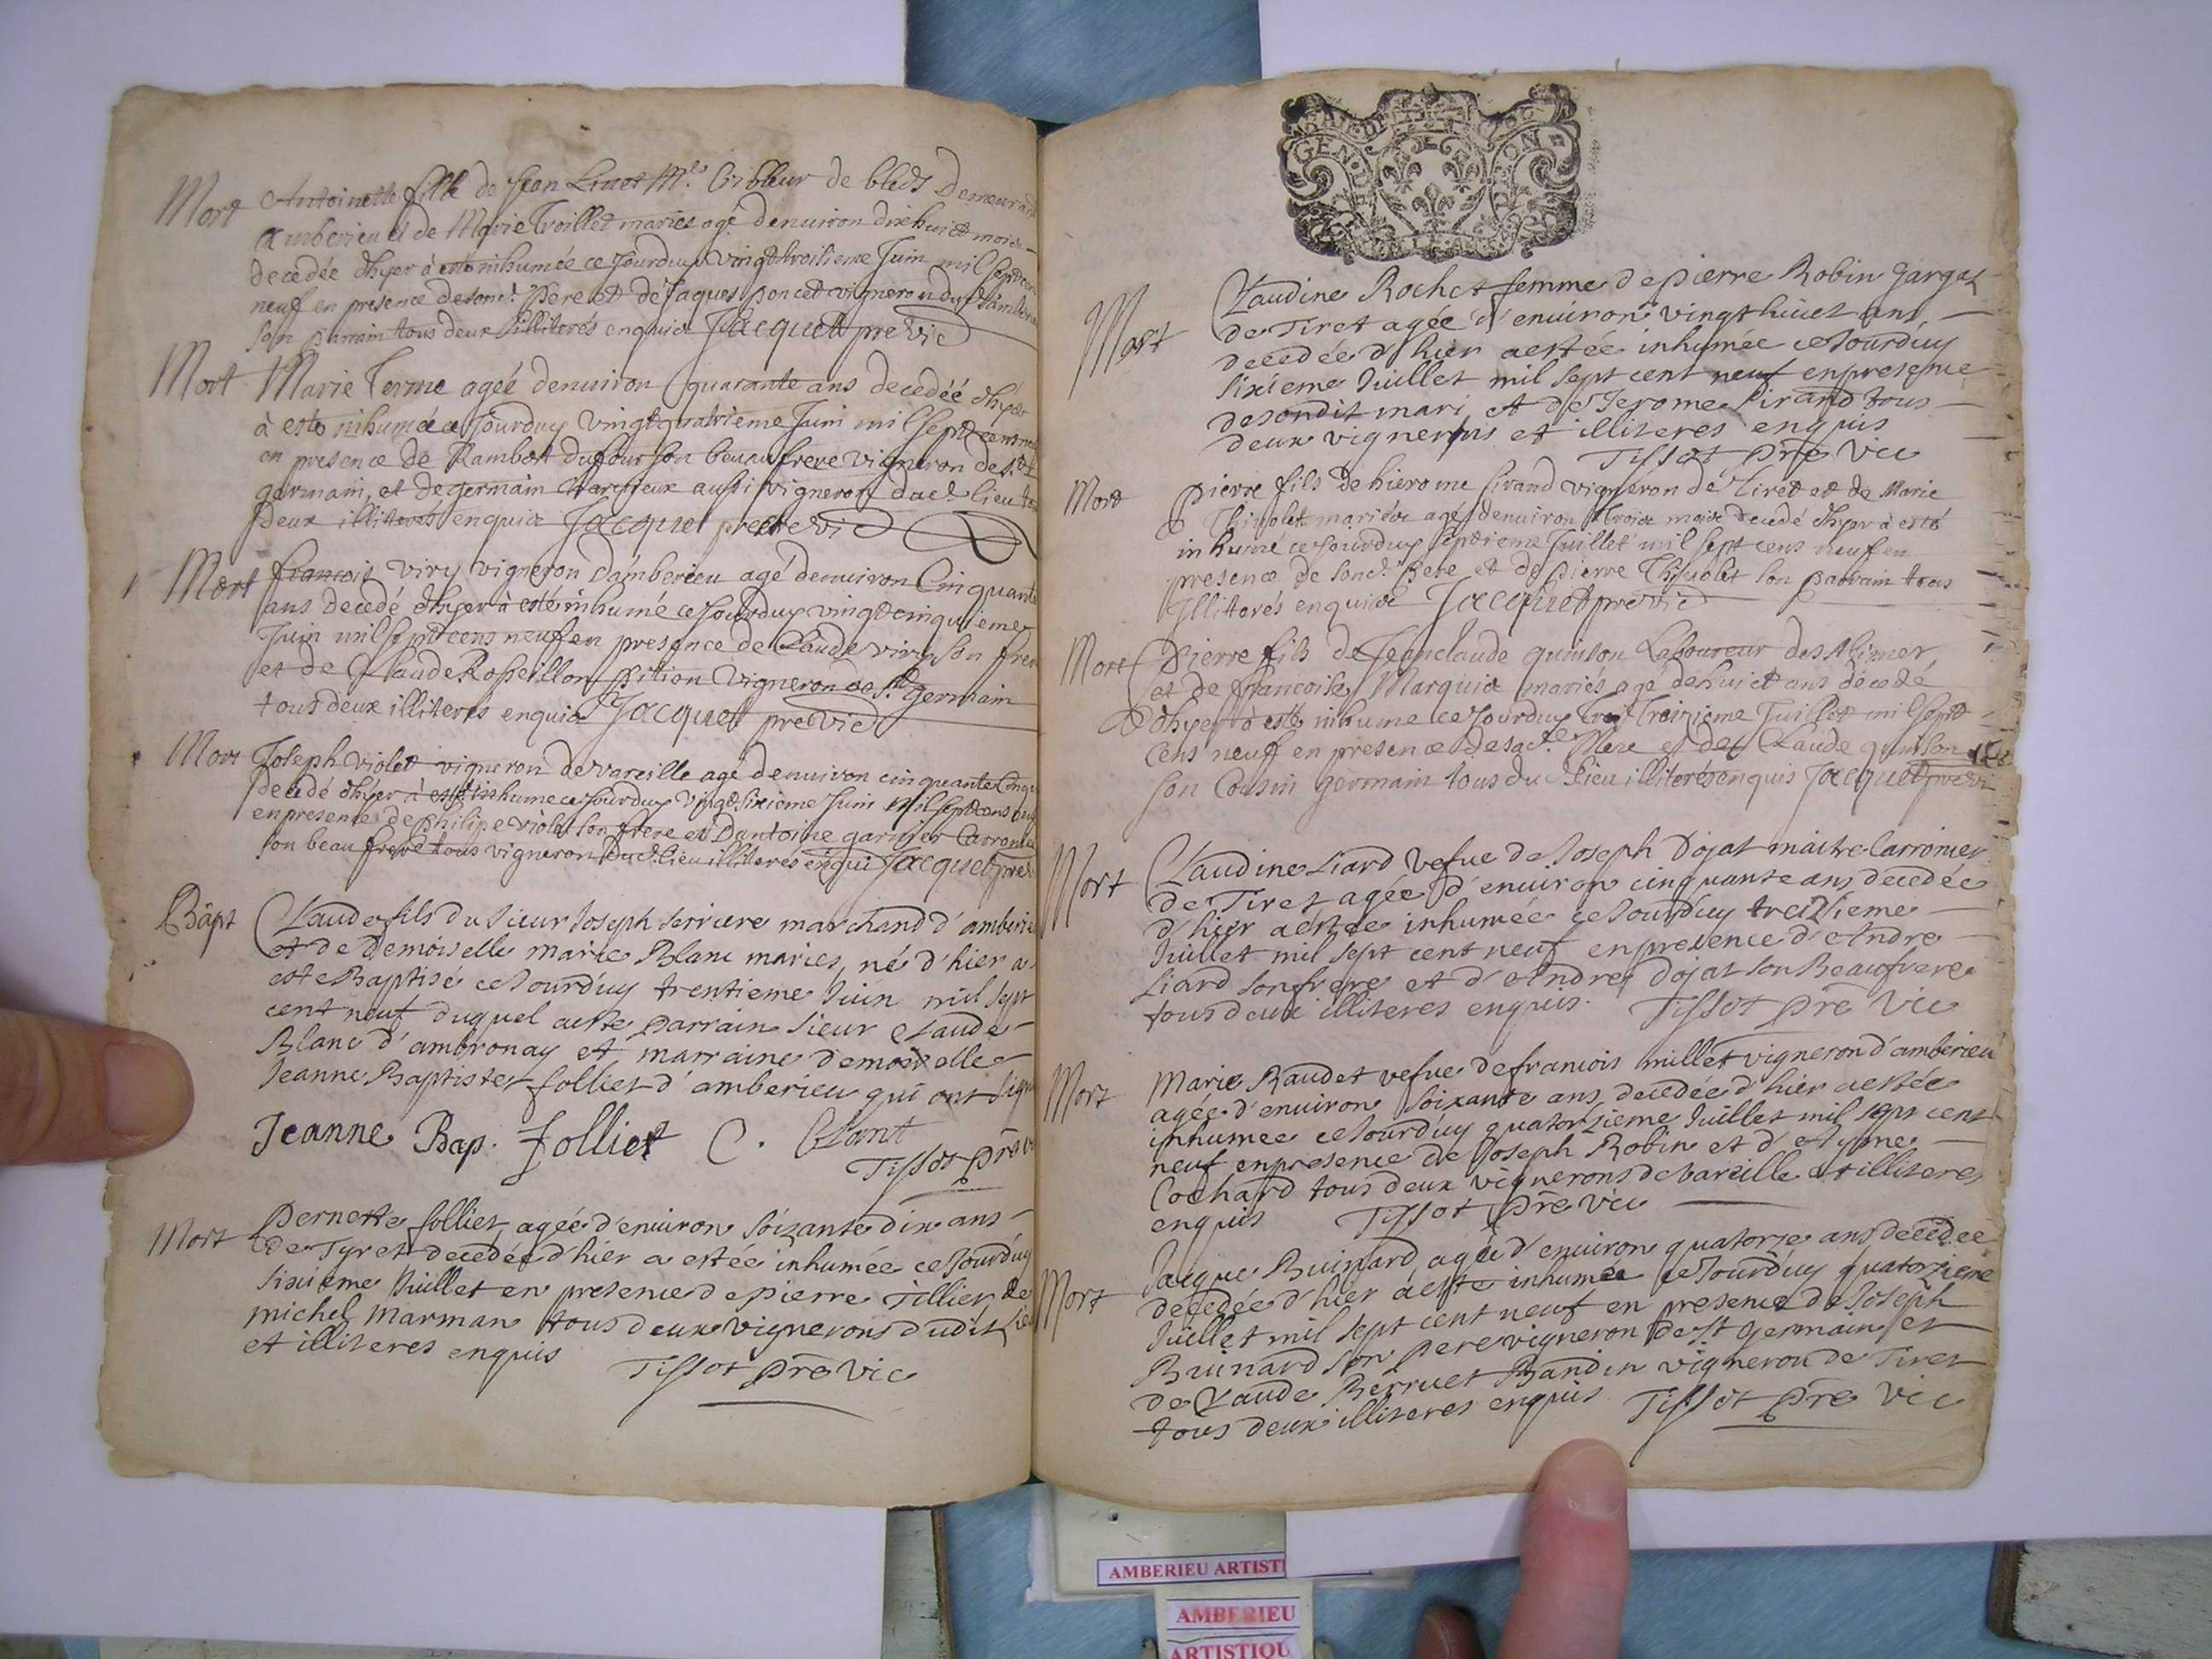 Mort Antoinette fille de Jean Linet Me Cribleur de bleds Demeurant
a amberieu et de Marie Troillet maries agé denuiron dixhuict mois
decedée dhyer à esté inhumée ce Jourduy vingttroisieme Juin mil septcens
neuf en presence de sond. Pere et de Jaques poncet vigneron du d. amberieu
son parrain tous deux illiterés enquis Jacquet pre vic
Mort Marie Terme agée denuiron quarante ans decedéé dhyer
à esté inhumée ce Jourduy vingtquatrieme Juin mil sept cens neuf
en presence de Rambert dufour son beaufrere vigneron de St
germain, et de germain Charpieux aussi vigneron dud. lieu tous
deux illiterés enquis Jacquet prestre vic
Mort francois viry vigneron Damberieu agé denuiron Cinquante
ans decedé dhyer à esté inhumé ce Jourduy vingtcinquieme
Juin mil septcens neuf en presence de Claude viry son frere
et de Claude Rosseillon pition vigneron de St germain
tous deux illiterés enquis Jacquet pre vic
Mort Joseph violet vigneron de vareille agé denuiron cinquante Cinq
decedé dhyer à esté inhume ce Jourduy vingt sixieme Juin mil septcens neuf
en presence de philipe violet son frere et Dantoine garnier Carronier
son beau frere tous vigneron dud. lieu illiteres enqui Jacquet pre
Bapt Claude fils du sieur Joseph serriere marchand d'amberieu
et de Demoiselle marie Blanc maries, né d'hier a
este Baptisé ce Jourd'uy trentieme Juin mil sept
cent neuf duquel aeste parrain sieur Claude
Blanc d'ambronay et marraine demoiselle
Jeanne Baptiste folliet d'amberieu qui ont signé
Jeanne Bap. folliet C. Blanc
Tissot pre vic
Mort Pernette folliet, agée d'enuiron soixante dix ans
de Tyret decedée d'hier a estée inhumée ce Jourd'uy
sixieme Juillet en presence de pierre Tillier de
michel marman tous deux vignerons dudit lieu
et illiteres enquis Tissot pre vic
Mort Claudine Rochet femme de pierre Robin gargat
de Tiret agée d'enuiron vingt huict ans,
decedée d'hier aestée inhumée ce Jourd'uy
sixieme Juillet mil sept cent neuf enpresence
desondit mari, et de Jerome sirand tous
deux vignerons et illiteres enquis
Tissot pre vic
Mort pierre fils de hierome sirand vigneron de Tiret et de Marie
Thiuolet mariés agé denuiron trois mois decedé dhyer à esté
inhumé ce Jourduy septieme Juillet mil sept cens neuf en
presence de sond. Pere et de pierre Thiuolet son parrain tous
illiterés enquis Jacquet pre vic
Mort Pierre fils de Jeanclaude quinson Laboureur des Alimes,
et de francoise Marquis mariés agé de huict ans décedé
dhyer à esté inhumé ce Jourduy Treizieme Juillet mil sept
cens neuff en presence de sad.te Mere et de Claude quinson
son Cousin germain tous du d. lieu illiterés enquis Jacquet pre vi
Mort Claudine Liard vefue de Joseph Dojat maitre Carronier
de Tiret agée d'enuiron cinquante ans decedée
d'hier aestée inhumée ce Jourd'uy treizieme
Juillet mil sept cent neuf enpresence d'Andre
Liard son frere et d'Andre Dojat son Beaufrere
tous deux illiteres enquis. Tissot pre vic
Mort Marie Raudet vefue de francois millet vigneron d'amberieu
agée d'enuiron soixante ans decedée d'hier aestée
inhumee ce Jourd'uy quatorzieme Juillet mil sept cent
neuf enpresence de Joseph Robin et d'Ayme
Cochard tous deux vignerons de vareille et illiteres
enquis Tissot pre vic
Mort Jacque Buinard, agée d'enuiron quatorze ans decedee
decedée d'hier aeste inhumée ce Jourd'uy quatorzieme
Juillet mil sept cent neuf en presence de Joseph
Buinard son pere vigneron de St germain et
de Claude Berruet Bandin vigneron de Tiret
tous deux illiteres enquis Tissot pre vic
AMBERIEU ARTISTI
AMBERIEU
ARTISTIQU